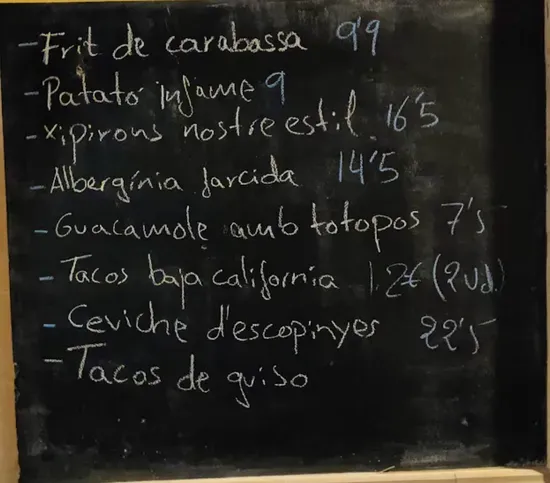 -Frit de carabassa 9'9
-Patató infame 9
-xipirons nostre estil 16'5
-Albergínia farcida 14'5
-Guacamole amb totopos 7'5
-Tacos baja california 12€ (2ud.)
-Ceviche d'escopinyes 22'5
-Tacos de guiso